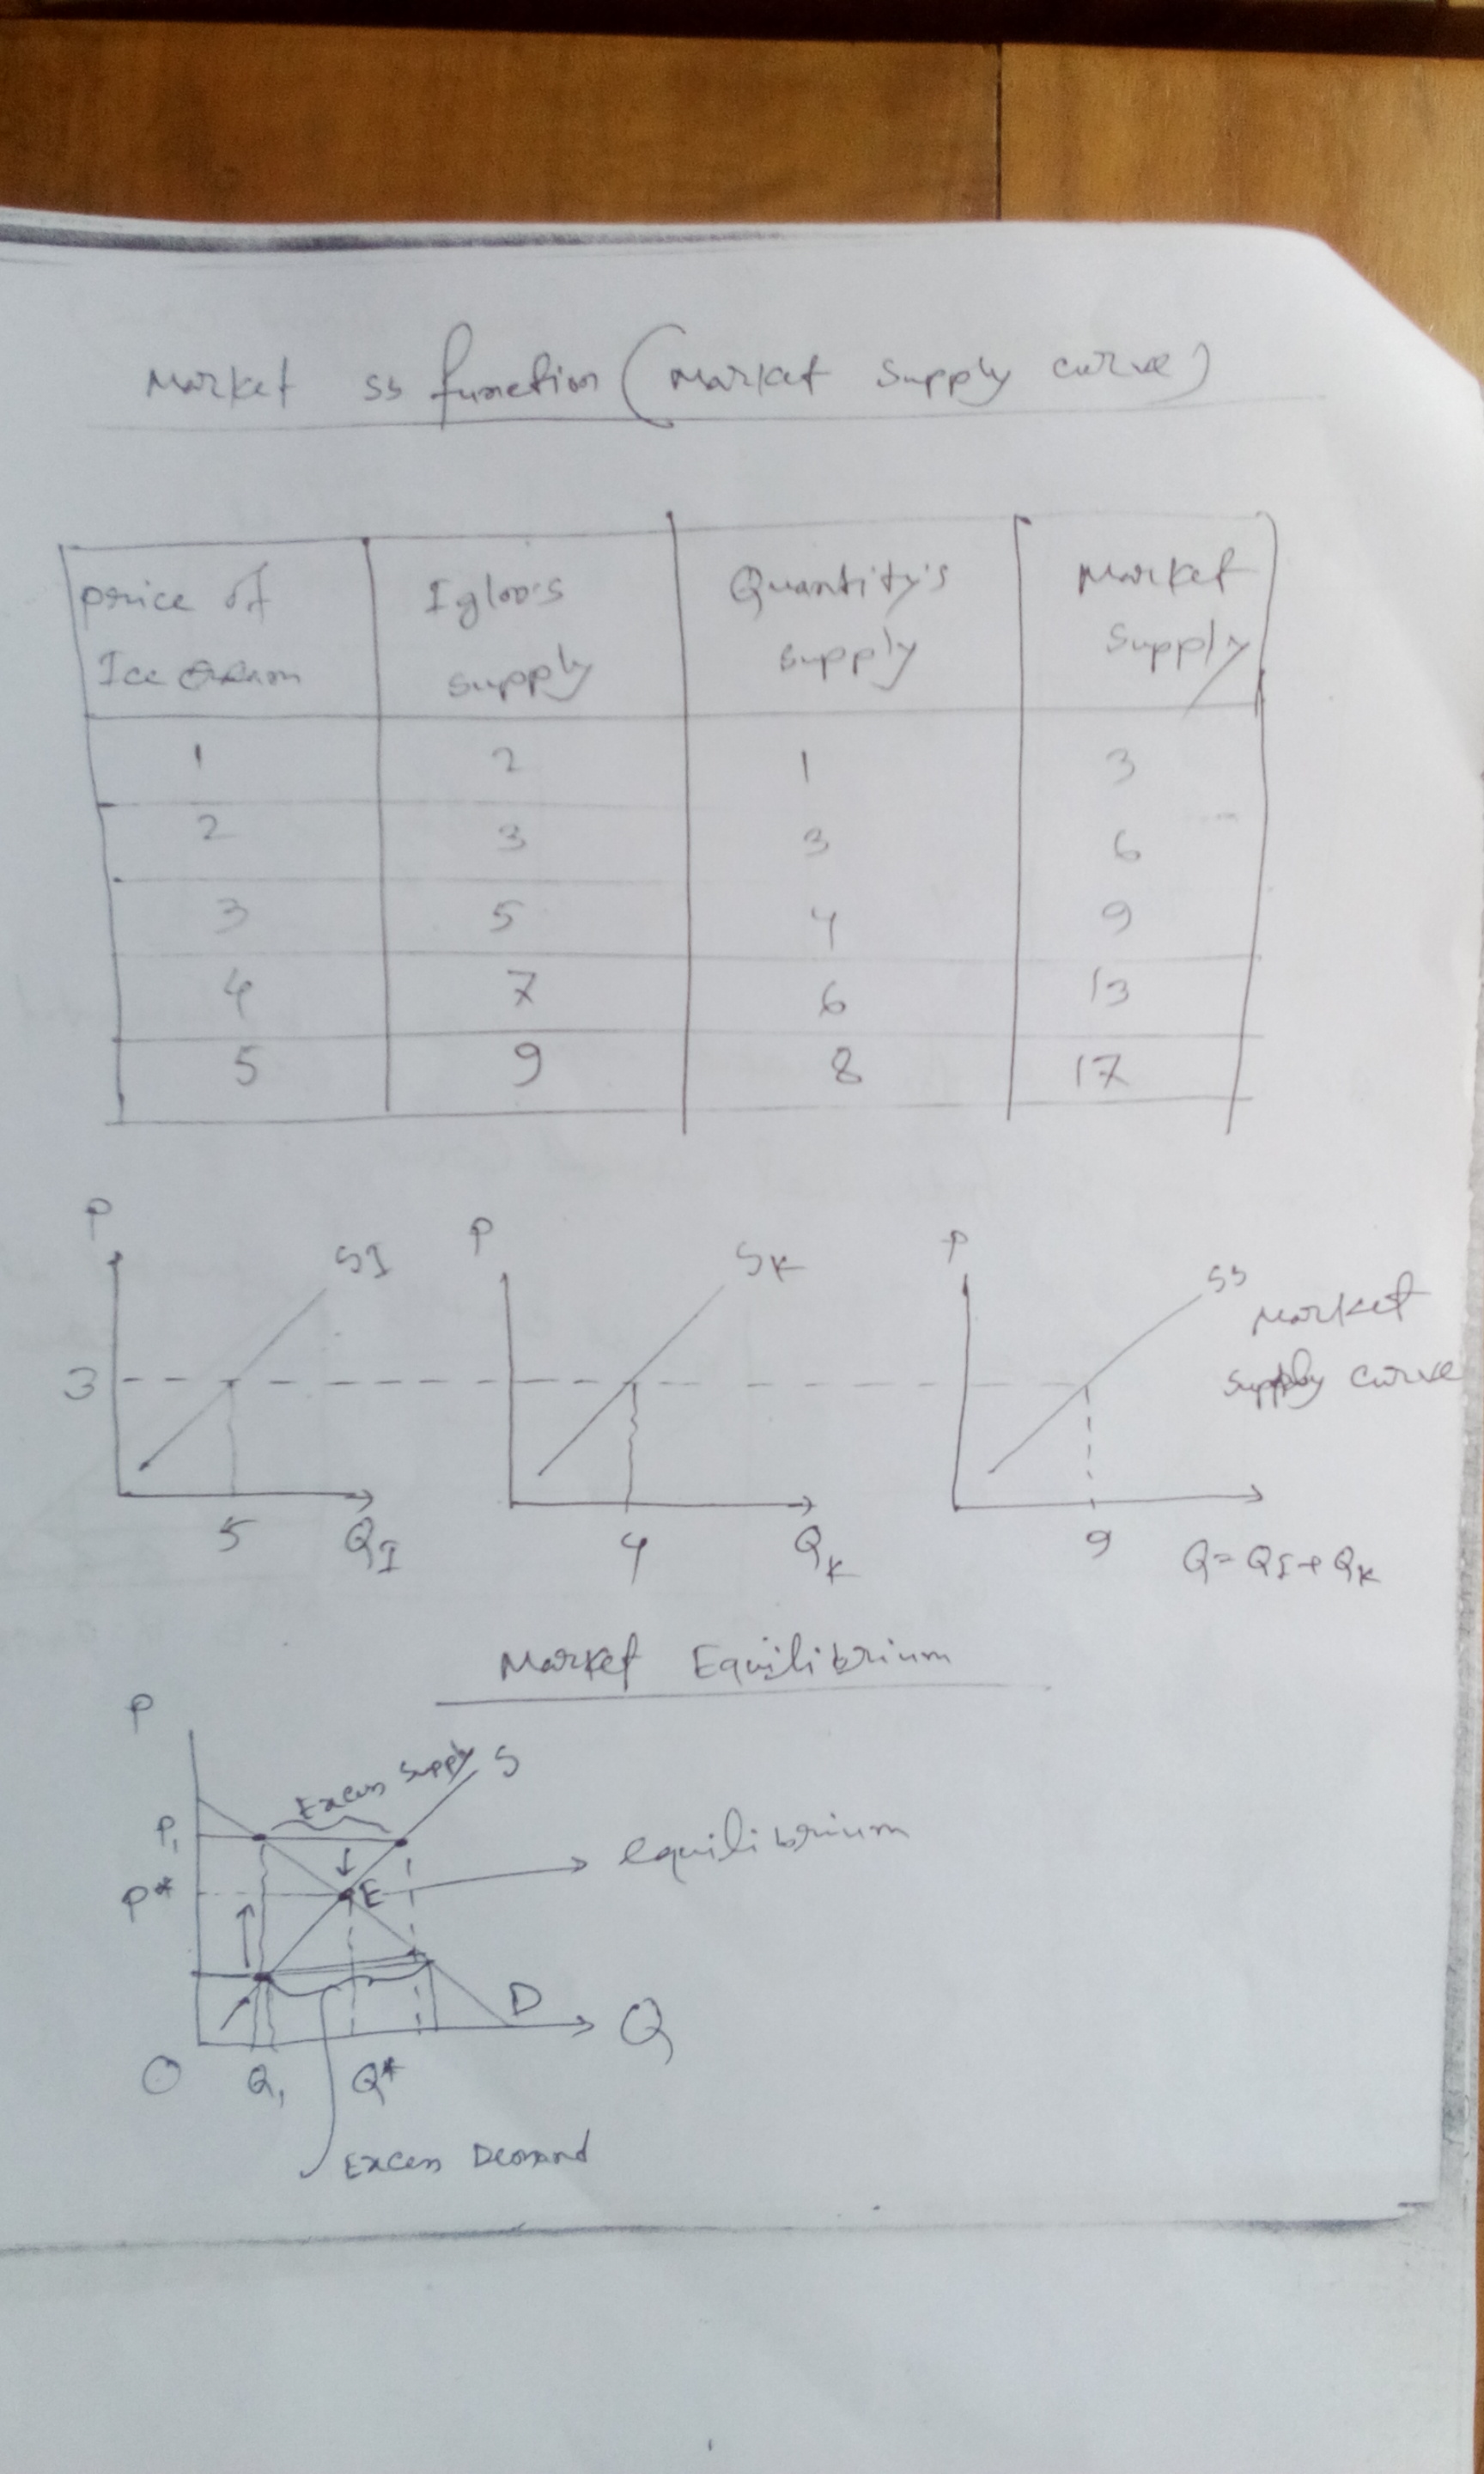 Market ss function (Market Supply curve)
price of Ice cream
Igloo's supply
Quantity's supply
Market Supply
1 2 1 3
2 3 3 6
3 5 4 9
4 7 6 13
5 9 8 17
P SI
P SK
P SS
Market
supply curve
3
5 QI
4 QK
9 Q = QI + QK
Market Equilibrium
P
Excess Supply S
P1
equilibrium
P* E
D
Q
O Q1 Q*
Excess Demand